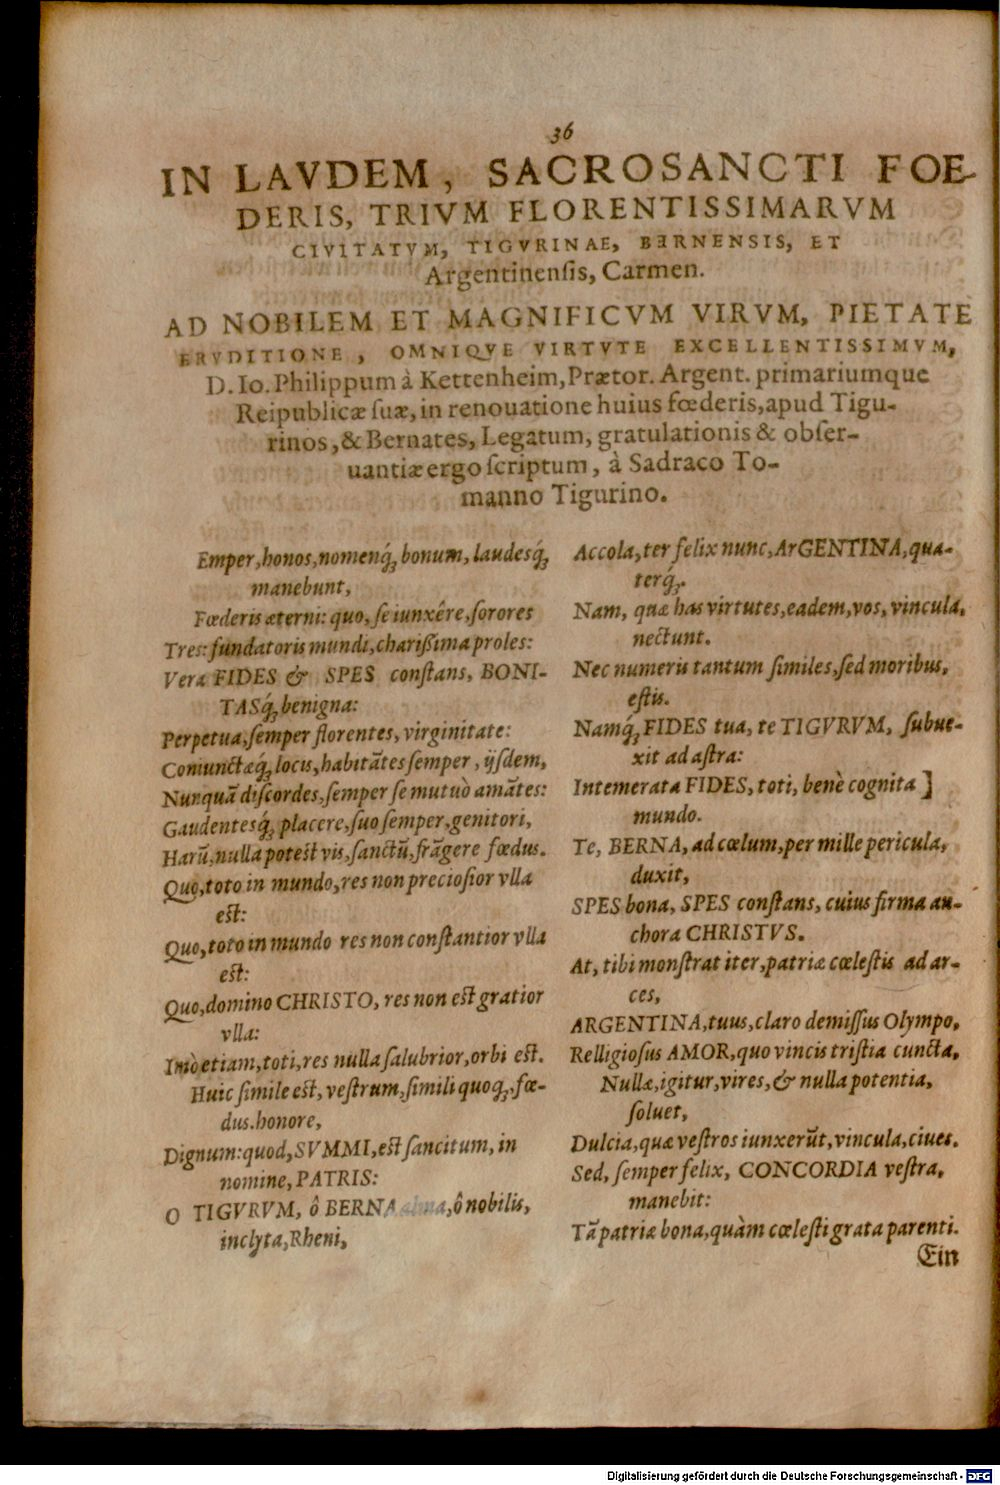 36
IN LAVDEM, SACROSANCTI FOE-
DERIS, TRIVM FLORENTISSIMARVM
CIVITATVM, TIGVRINAE, BERNENSIS, ET
Argentinenſis, Carmen.
AD NOBILEM ET MAGNIFICVM VIRVM, PIETATE
ERVDITIONE, OMNIQVE VIRTVTE EXCELLENTISSIMVM,
D. Io. Philippum à Kettenheim, Prætor. Argent. primariumque
Reipublicæ ſuæ, in renouatione huius fœderis, apud Tigu-
rinos, & Bernates, Legatum, gratulationis & obſer-
uantiæ ergo ſcriptum, à Sadraco To-
manno Tigurino.
Emper, honos, nomenq́ꝫ bonum, laudesq́ꝫ
manebunt,
Fœderis æterni: quo, ſe iunxêre, ſorores
Tres: fundatoris mundi, chariſsima proles:
Vera FIDES & SPES conſtans, BONI-
TASq́ꝫ benigna:
Perpetua, ſemper florentes, virginitate:
Coniunctæq́ꝫ locis, habitãtes ſemper, ijſdem,
Nunquã diſcordes, ſemper ſe mutuò amãtes:
Gaudentesq́ꝫ placere, ſuo ſemper, genitori,
Harũ, nulla poteſt vis, ſanctũ, frãgere fœdus.
Quo, toto in mundo, res non precioſior vlla
eſt:
Quo, toto in mundo res non conſtantior vlla
eſt:
Quo, domino CHRISTO, res non eſt gratior
vlla:
Imò etiam, toti, res nulla ſalubrior, orbi eſt.
Huic ſimile eſt, veſtrum, ſimili quoqꝫ, fœ-
dus. honore,
Dignum: quod, SVMMI, eſt ſancitum, in
nomine, PATRIS:
O TIGVRVM, ô BERNA alma, ô nobilis,
inclyta, Rheni,
Accola, ter felix nunc, ArGENTINA, qua-
terq́ꝫ.
Nam, quæ has virtutes, eadem, vos, vincula,
nectunt.
Nec numeris tantum ſimiles, ſed moribus,
eſtis.
Namq́ꝫ FIDES tua, te TIGVRVM, ſubue-
xit ad aſtra:
Intemerata FIDES, toti, benè cognita ]
mundo.
Te, BERNA, ad cœlum, per mille pericula,
duxit,
SPES bona, SPES conſtans, cuius firma an-
chora CHRISTVS.
At, tibi monſtrat iter, patriæ cœleſtis ad ar-
ces,
ARGENTINA, tuus, claro demiſſus Olympo,
Relligioſus AMOR, quo vincis triſtia cuncta,
Nullæ, igitur, vires, & nulla potentia,
ſoluet,
Dulcia, quæ veſtros iunxerũt, vincula, ciues.
Sed, ſemper felix, CONCORDIA veſtra,
manebit:
Tã patriæ bona, quàm cœleſti grata parenti.
Ein
Digitalisierung gefördert durch die Deutsche Forschungsgemeinschaft - DFG